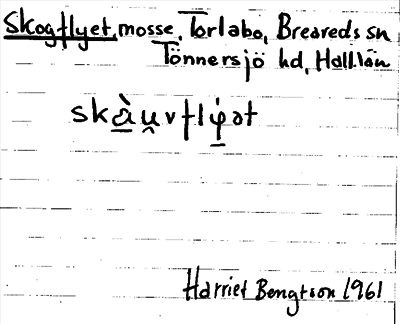 Skogflyet, mosse, Torlabo, Breareds sn
Tönnersjö hd, Hall.län
skàu̯vflỵ̀ət
Harriet Bengtson 1961